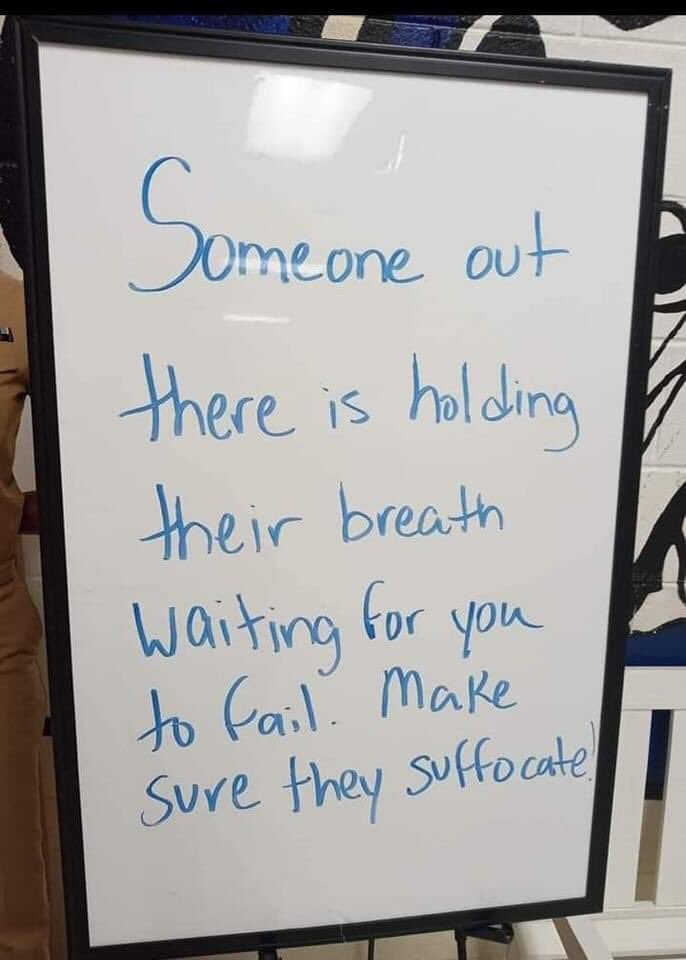 Someone out
there is holding
their breath
waiting for you
to fail. Make
sure they suffocate!